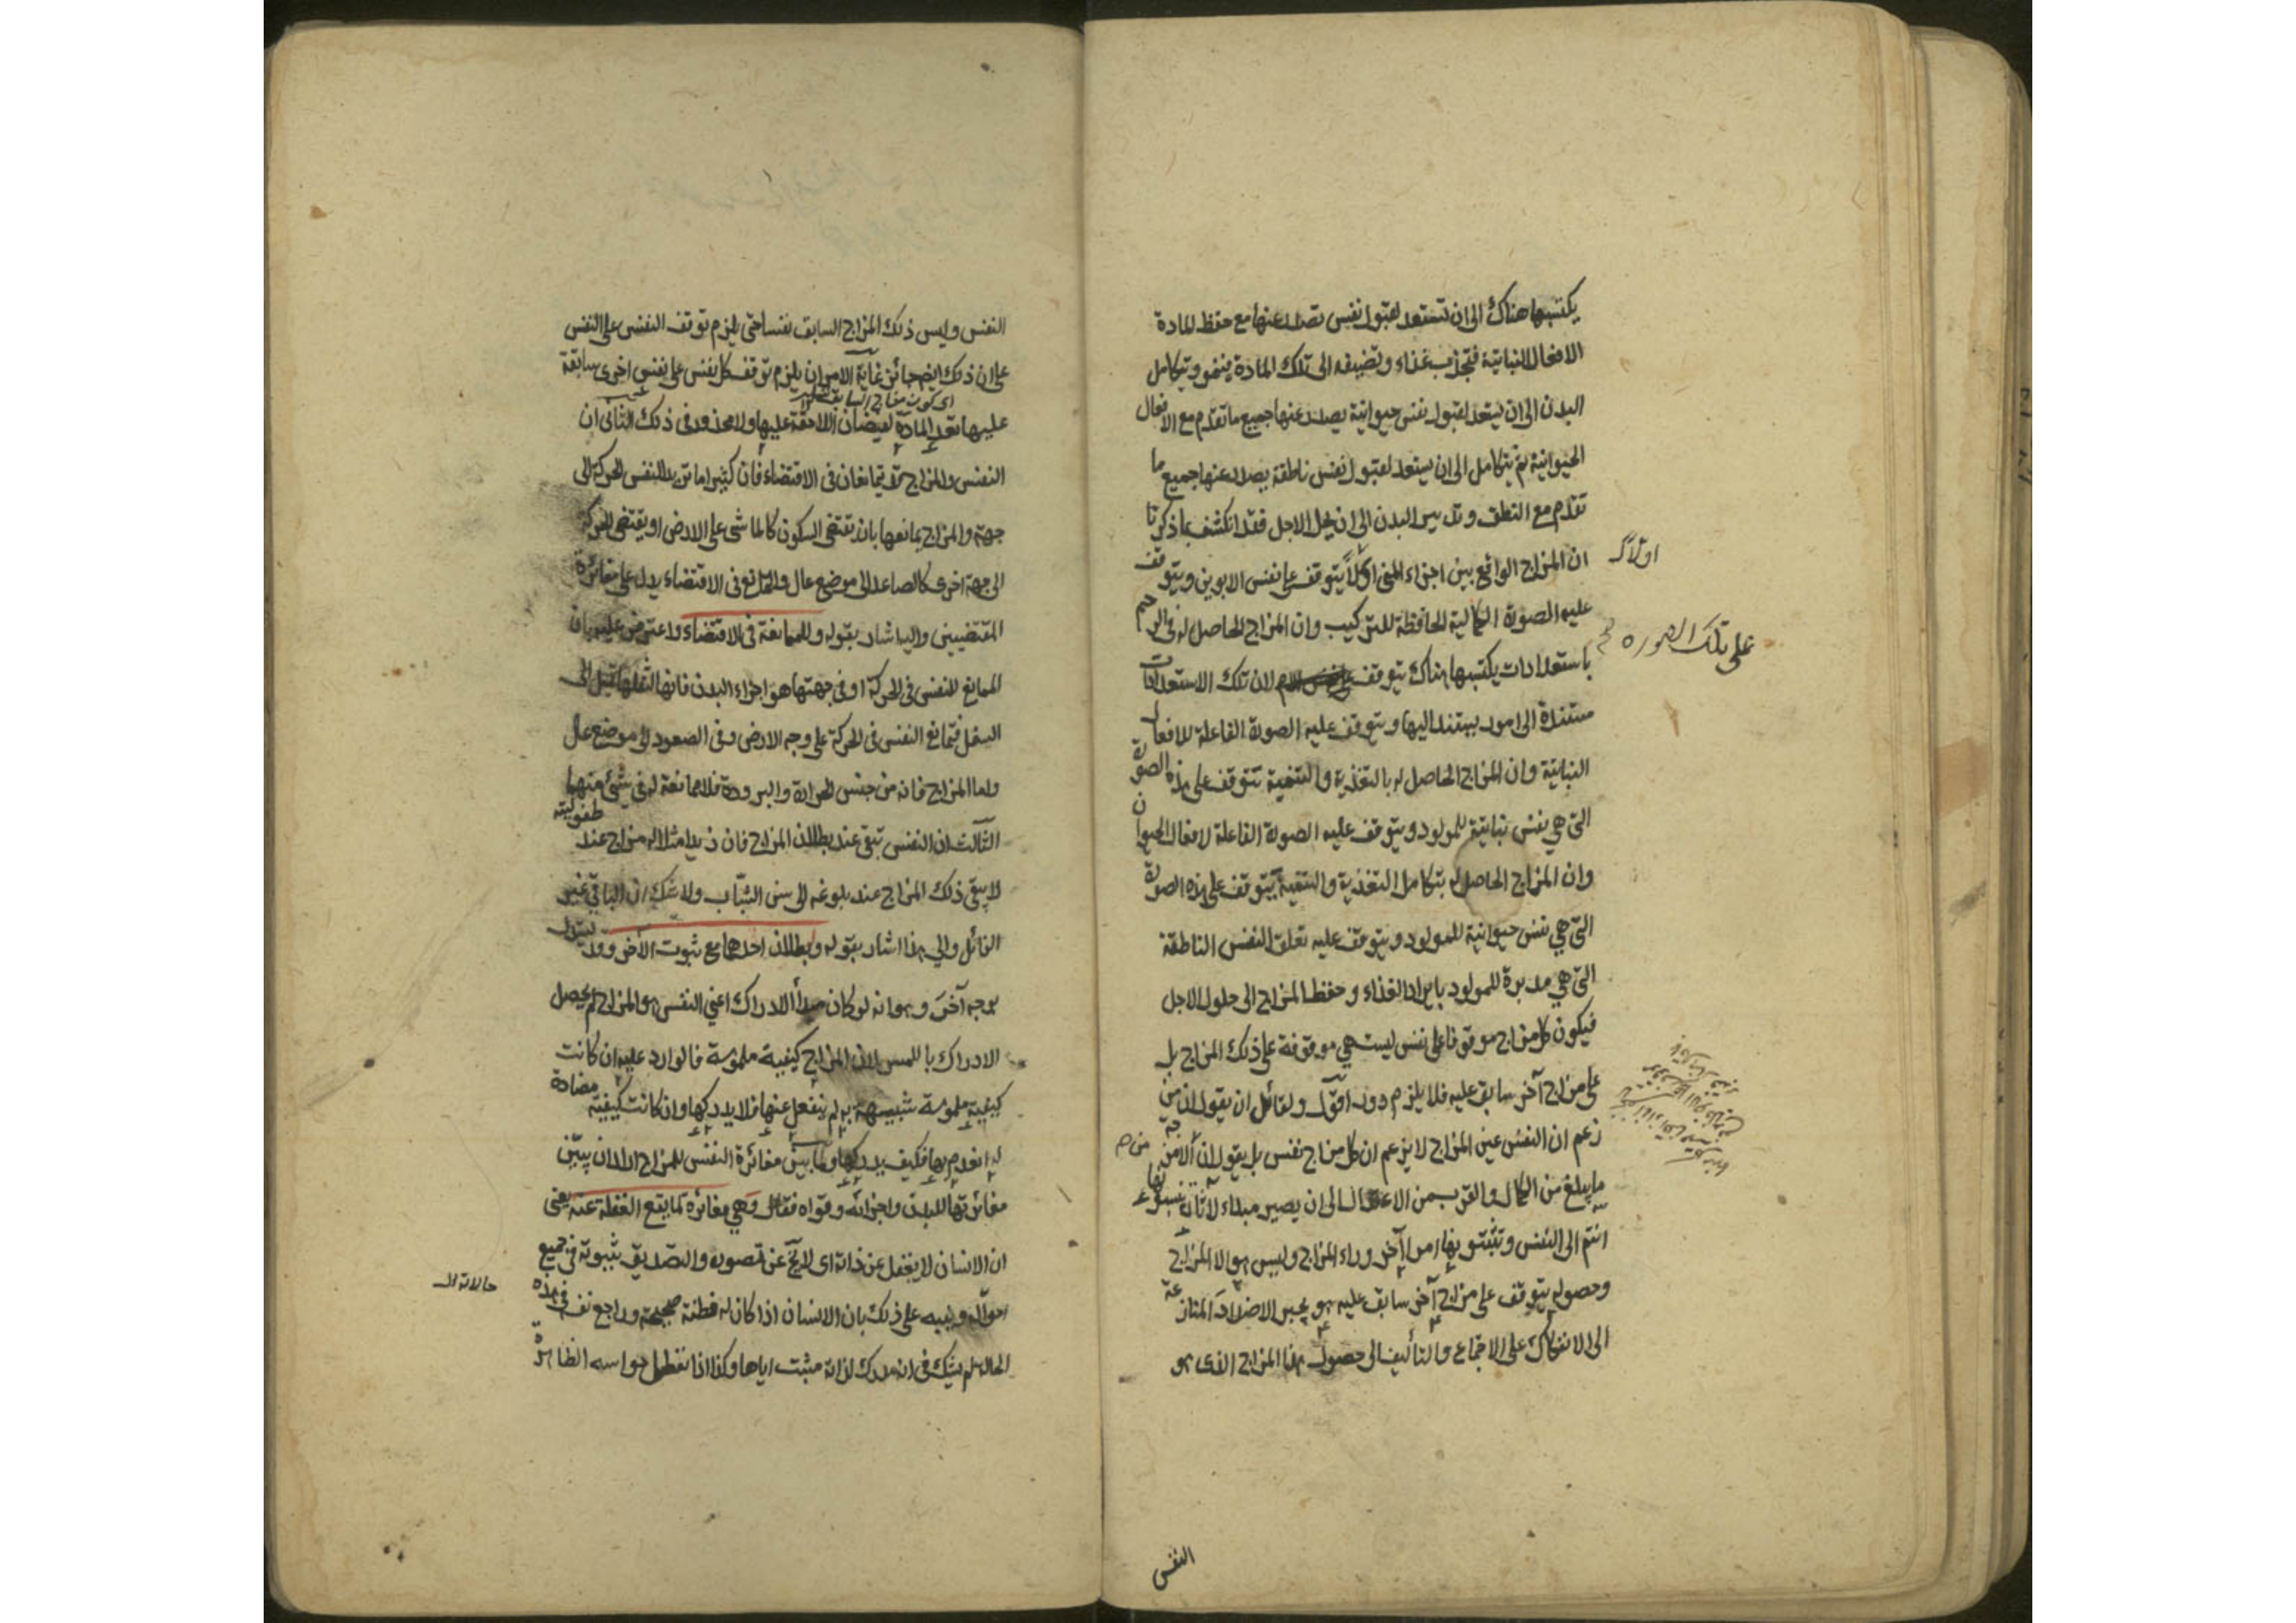 يكتسبها هناك الى ان تستعد لقبول نفس تصدر عنها مع حفظ المادة
الافعال النباتية فتجذب غذاء وتضيفه الى تلك المادة فينمو ويتكامل
البدن الى ان يستعد لقبول نفس حيوانية يصدر عنها جميع ما تقدم مع الافعال
الحيوانية ثم يتكامل الى ان يستعد لقبول نفس ناطقة يصدر عنها جميع ما
تقدم مع النطق وتدبير البدن الى ان يحل الاجل فقد انكشف بما ذكرنا
ان المزاج الواقع بين اجزاء المني اولا يتوقف على نفس الابوين ويتوقف
عليه الصورة الكمالية الحافظة للتركيب وان المزاج الحاصل له في الرحم
باستعدادات يكتسبها هناك يتوقف لان تلك الاستعدادات
مستندة الى امور يستند اليها ويتوقف عليه الصورة الفاعلة للافعال
النباتية وان المزاج الحاصل له بالتغذية والتنمية يتوقف على هذه الصورة
التي هي نفس نباتية للمولود ويتوقف عليه الصورة الفاعلة لافعال الحيوان
وان المزاج الحاصل له بتكامل التغذية والتنمية يتوقف على هذه الصورة
التي هي نفس حيوانية للمولود ويتوقف عليه تعلق النفس الناطقة
التي هي مدبرة للمولود بايراد الغذاء وحفظ المزاج الى حلول الاجل
فيكون كل مزاج موقوفا على نفس ليست هي موقوفة على ذلك المزاج بل
على مزاج آخر سابق عليه فلا يلزم دور اقول ولقائل ان يقول ان من
زعم ان النفس عين المزاج لا يزعم ان كل مزاج نفس بل يقول ان الامزجة
ما يبلغ من الكمال والقرب من الاعتدال الى ان يصير مبداء لآثار نسبتموها
انتم الى النفس وتثبتو بها امرا آخر وراء المزاج وليس هو الا المزاج
وحصوله يتوقف على مزاج آخر سابق عليه هو يجبر الاضداد المتنازعة
الى الانفكاك على الاجتماع والتأليف الى حصول هذا المزاج الذى هو
اولا
على تلك الصورة
من
النفس
النفس وليس ذلك المزاج السابق نفسا حتى يلزم توقف النفس على النفس
على ان ذلك ايضا جائز غاية الامر ان يلزم توقف كل نفس على نفس اخرى سابقة
عليها تعد المادة لفيضان اللاحقة عليها ولا محذور في ذلك الثانى ان
النفس والمزاج قد يتمانعان في الاقتضاء فان كثيرا ما تريد النفس الحركة الى
جهة والمزاج يمانعها بان يقتضي السكون كالماشى على الارض او يقتضي الحركة
الى جهة اخرى كالصاعد الى موضع عال والتمانع في الاقتضاء يدل على مغائرة
المقتضيين واليه اشار بقوله وللممانعة في الاقتضاء واعترض عليه بان
الممانع للنفس في الحركة او في جهتها هو اجزاء البدن فانها لثقلها تميل الى
السفل فتمانع النفس في الحركة على وجه الارض وفي الصعود الى موضع عال
واما المزاج فانه من جنس الحرارة والبرودة فلا ممانعة له في شيء منهما
الثالث ان النفس تبقى عند بطلان المزاج فان زيدا مثلا له مزاج عند طفوليته
لا يبقى ذلك المزاج عند بلوغه الى سن الشباب ولا شك ان الباقي غير
الزائل والى هذا اشار بقوله وبطلان احدهما مع ثبوت الآخر وقد يستدل
بوجه آخر وهو انه لو كان مبدأ الادراك اعني النفس هو المزاج لم يحصل
الادراك باللمس لان المزاج كيفية ملموسة فالوارد عليه ان كانت
كيفية ملموسة شبيهة به لم ينفعل عنها فلا يدركها وان كانت كيفية مضادة
له انعدم بها فكيف يدركها ولما بين مغائرة النفس للمزاج اراد ان يبين
مغائرتها للبدن واجزائه وقواه فقال وهي مغائرة لما يقع الغفلة عنه يعنى
ان الانسان لا يغفل عن ذاته اى لا يخ عن تصوره والتصديق بثبوته في جميع
احواله ونبه على ذلك بان الانسان اذا كان له فطنة صحيحة وراجع نفسه في هذه
الحالة لم يشك في انه مدرك لذاته مثبت اياها وكذا اذا تعطل حواسه الظاهرة